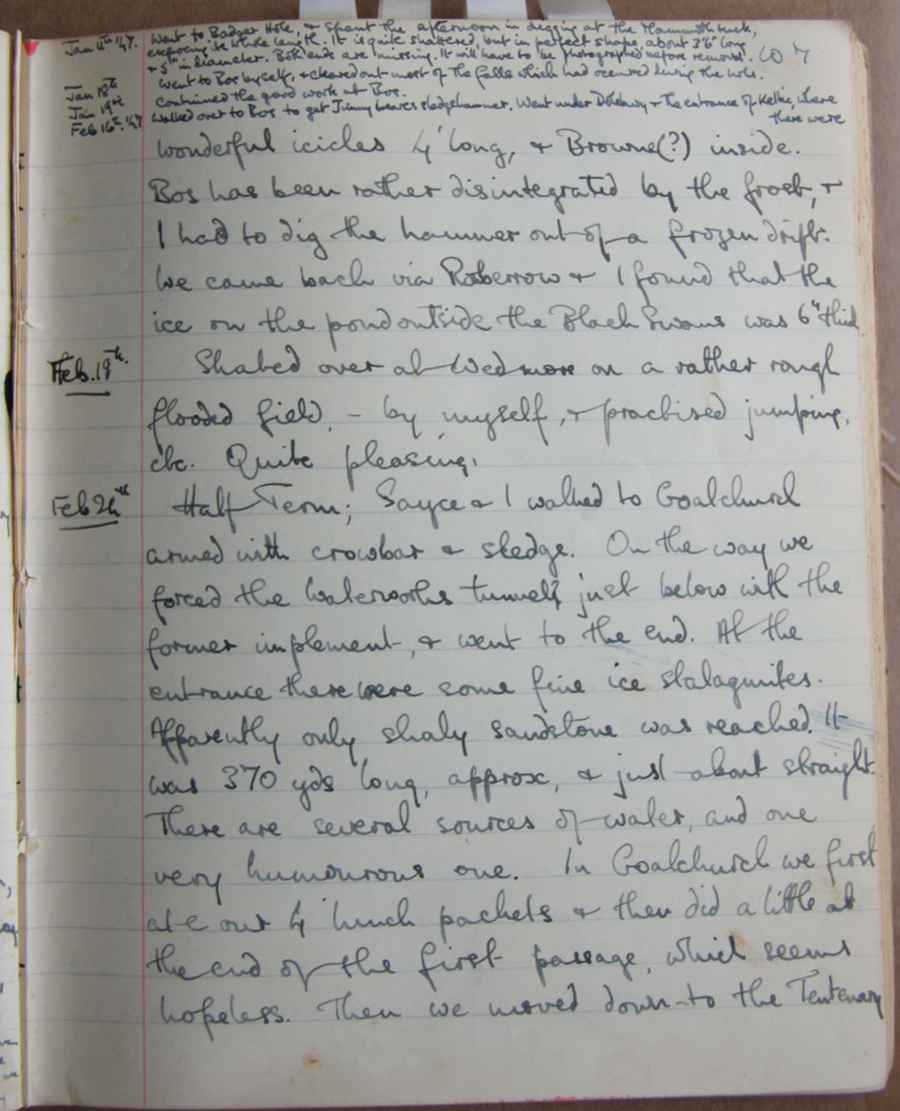 Jan 11th '47. Went to Badger Hole, & spent the afternoon in digging at the Mammoth tusk,
exposing its whole length. It is quite shattered, but in perfect shape, about 3'6" long
& 5" in diameter. Both ends are missing. It will have to be photographed before removal.
Jan 18th Went to Bos by self, & cleared out most of the falls which had occurred during the hols.
Jan 19th Continued the good work at Bos.
Feb 16th. '47 Walked over to Bos to get Jimmy sledgehammer. Went under Dolebury & the entrance of where
there were
wonderful icicles 4' long, & Browne(?) inside.
Bos has been rather disintegrated by the frost, &
I had to dig the hammer out of a frozen drift.
We came back via Roberrow & I found that the
ice on the pond outside the Black Swans was 6" thick
Feb. 19th. Skated over at Wedmore on a rather rough
flooded field, - by myself, & practised jumping,
etc. Quite pleasing.
Feb 24th Half Term; Sayce & I walked to Goatchurch
armed with crowbar & sledge. On the way we
forced the Waterworks tunnel just below with the
former implement, & went to the end. At the
entrance there were some fine ice stalagmites.
Apparently only shaly sandstone was reached. It
was 370 yds long, approx, & just about straight.
There are several sources of water, and one
very humourous one. In Goatchurch we first
ate our 4 lunch packets & then did a little at
the end of the first passage, which seems
hopeless. Then we moved down to the Tentenary